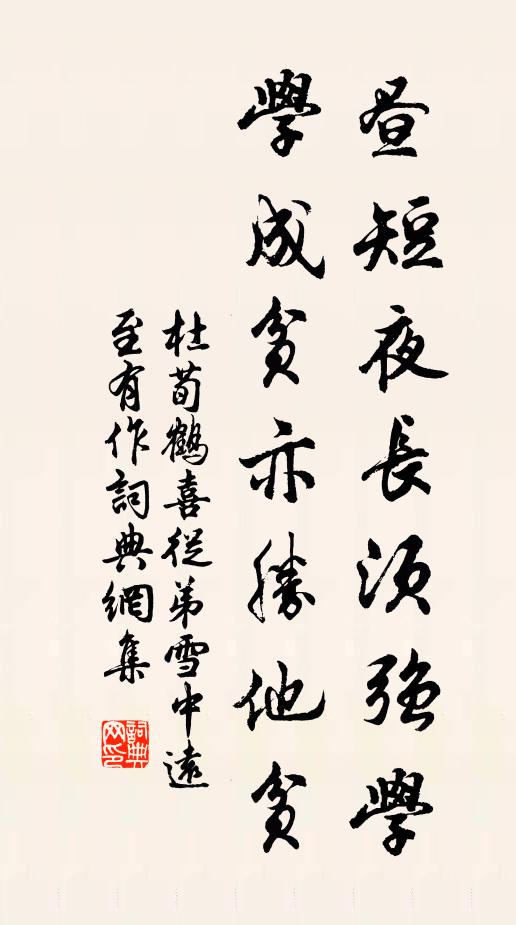 晝短夜長須強學
學成貧亦勝他貧
杜荀鶴喜從弟雪中遠
至有作詞典網集
詞典網印